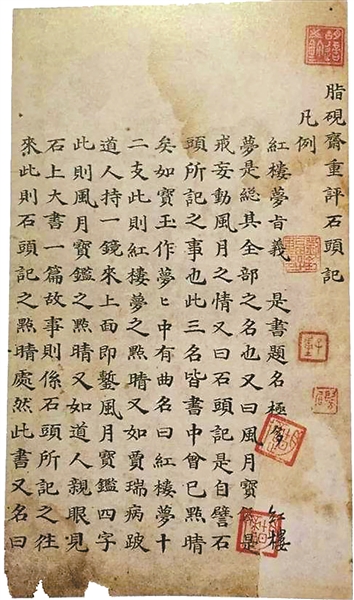 脂硯齋重評石頭記
凡例
紅樓夢旨義 是書題名極多 紅樓
夢是総其全部之名也又曰風月寶鑑是
戒妄動風月之情又曰石頭記是自譬石
頭所記之事也此三名皆書中曾已點睛
矣如寶玉作夢〻中有曲名曰紅樓夢十
二支此則紅樓夢之點睛又如賈瑞病跛
道人持一鏡來上面即鏨風月寶鑑四字
此則風月寶鑑之點睛又如道人親眼見
石上大書一篇故事則係石頭所記之往
來此則石頭記之點睛處然此書又名曰